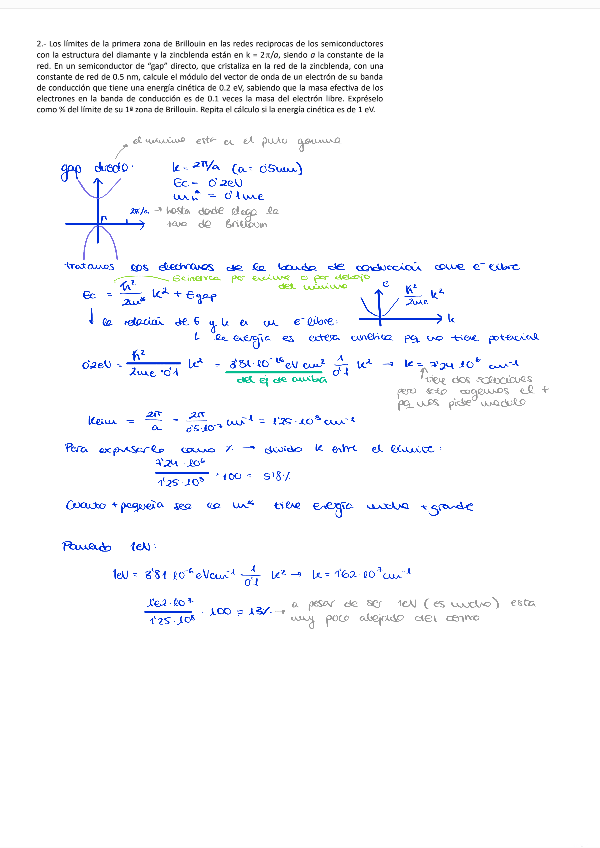 2.- Los límites de la primera zona de Brillouin en las redes reciprocas de los semiconductores
con la estructura del diamante y la zincblenda están en k = 2π/a, siendo a la constante de la
red. En un semiconductor de "gap" directo, que cristaliza en la red de la zincblenda, con una
constante de red de 0.5 nm, calcule el módulo del vector de onda de un electrón de su banda
de conducción que tiene una energía cinética de 0.2 eV, sabiendo que la masa efectiva de los
electrones en la banda de conducción es de 0.1 veces la masa del electrón libre. Expréselo
como % del límite de su 1ª zona de Brillouin. Repita el cálculo si la energía cinética es de 1 eV.
el mínimo está en el punto gamma
gap directo.
k = 2π/a (a = 0'5nm)
Ec = 0'2eV
mn* = 0'1me
2π/a → hasta donde llega la
zona de Brillouin
Γ
tratamos los electrones de la banda de conducción como e- libre
Ec = ħ²/2m* k² + Egap
simétrica por encima o por debajo
del mínimo
E
ħ²/2me k²
k
↓ la relación de E y k en un e- libre:
↳ la energía es entera cinética pq no tiene potencial
0'2eV = ħ²/2me·0'1 k² = 3'81·10⁻¹⁶ eV cm² 1/0'1 k² → k = 7'24·10⁶ cm⁻¹
del ej de arriba
tiene dos soluciones
pero solo cogemos el +
pq nos pide modulo
klim = 2π/a = 2π/0'5·10⁻⁷ cm⁻¹ = 1'25·10⁸ cm⁻¹
Para expresarlo como % → divido k entre el límite:
7'24·10⁶/1'25·10⁸ · 100 = 5'8%
Cuanto + pequeña sea la m* tiene energía mucho + grande
Para 1eV:
1eV = 3'81·10⁻⁶ eVcm⁻¹ 1/0'1 k² → k = 1'62·10⁷ cm⁻¹
1'62·10⁷/1'25·10⁸ · 100 = 13% → a pesar de ser 1eV (es mucho) esta
muy poco alejado del centro